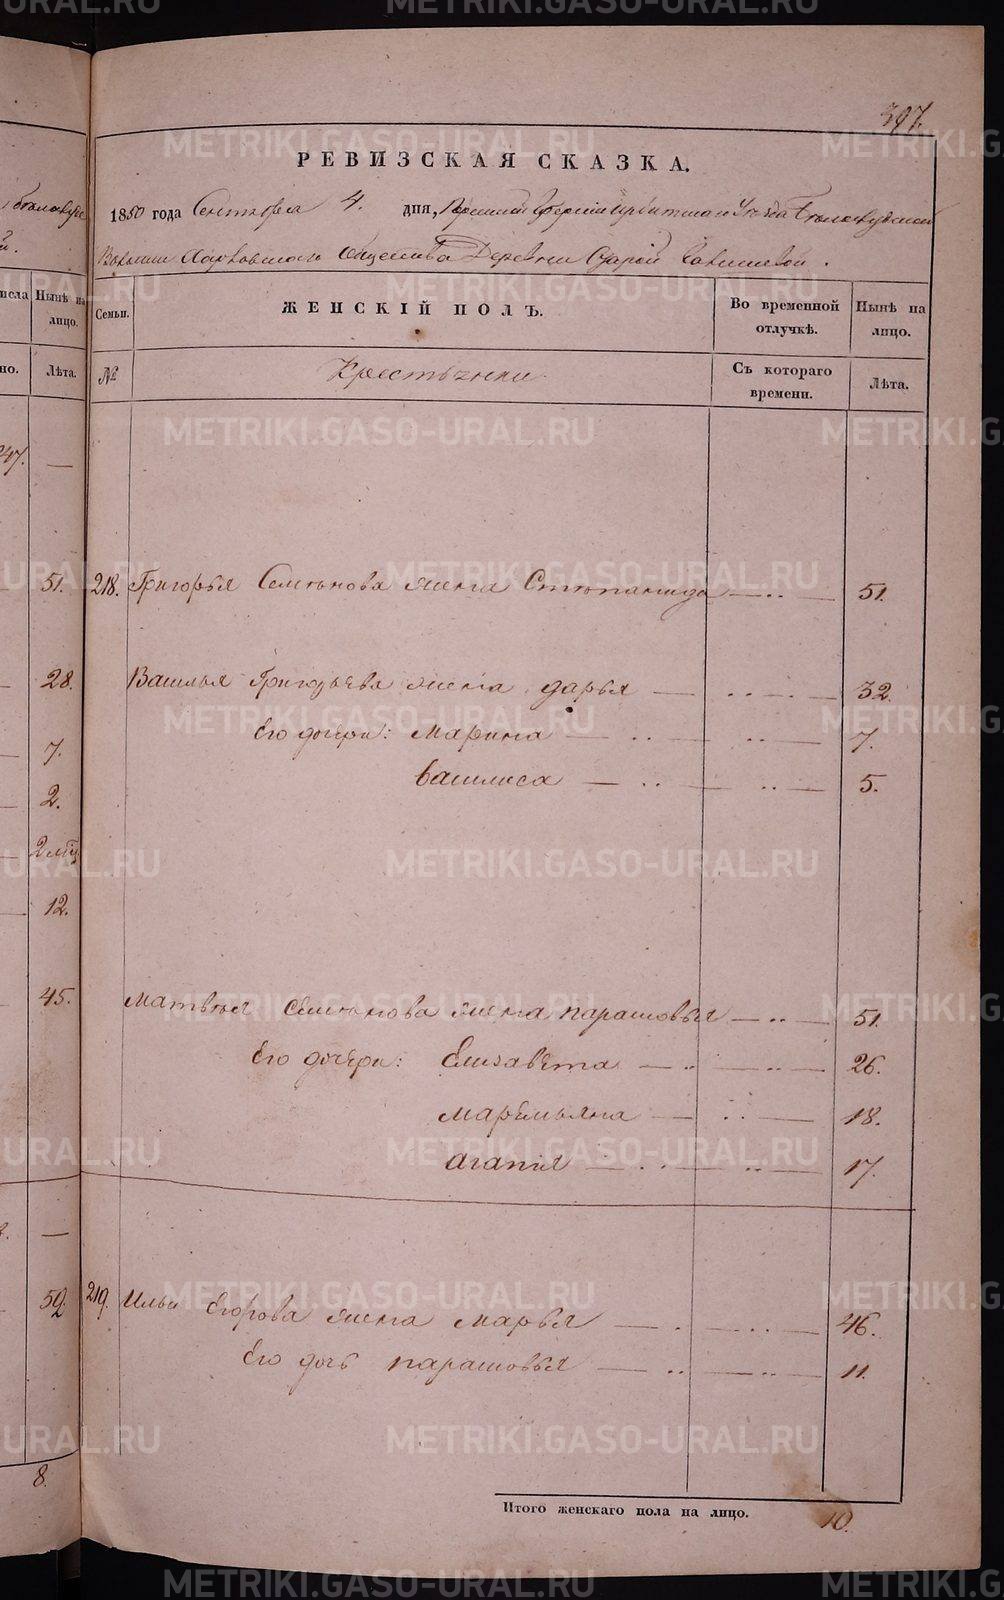 397.
РЕВИЗСКАЯ СКАЗКА.
1850 года Сентября 4. дня, Пермской Губерніи Ирбитскаго Уѣзда Бѣлослудской
Волости Харловскаго Общества Деревни Старой
Семьи.
ЖЕНСКІЙ ПОЛЪ.
Во временной отлучкѣ.
Нынѣ на лицо.
№
Крестьянки
Съ котораго времени.
Лѣта.
218. Григорья Семенова жена Степанида — 51.
Василья Григорьева жена Дарья — 32.
Его дочери: Марина — 7.
Василиса — 5.
Матвѣя Семенова жена Парасковья — 51.
Его дочери: Елизавета — 26.
Маремьяна — 18.
Агапія — 17.
219. Ильи Егорова жена Марья — 46.
Его дочь Парасковья — 11.
Итого женскаго пола на лицо. 10.
Нынѣ на лицо.
Лѣта.
51.
28.
7.
2.
12.
45.
8.
METRIKI.GASO-URAL.RU